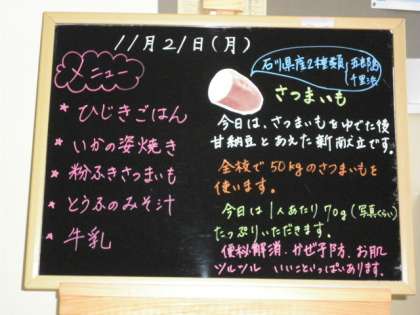 11月21日(月)
メニュー
* ひじきごはん
* いかの姿焼き
* 粉ふきさつまいも
* とうふのみそ汁
* 牛乳
石川県産2種類
五郎島
千里浜
さつまいも
今日は、さつまいもをゆでた後
甘納豆とあえた新献立です。
全校で50kgのさつまいもを
使います。
今日は1人あたり70g(写真くらい)
たっぷりいただきます。
便秘解消、かぜ予防、お肌
ツルツル いいこといっぱいあります。